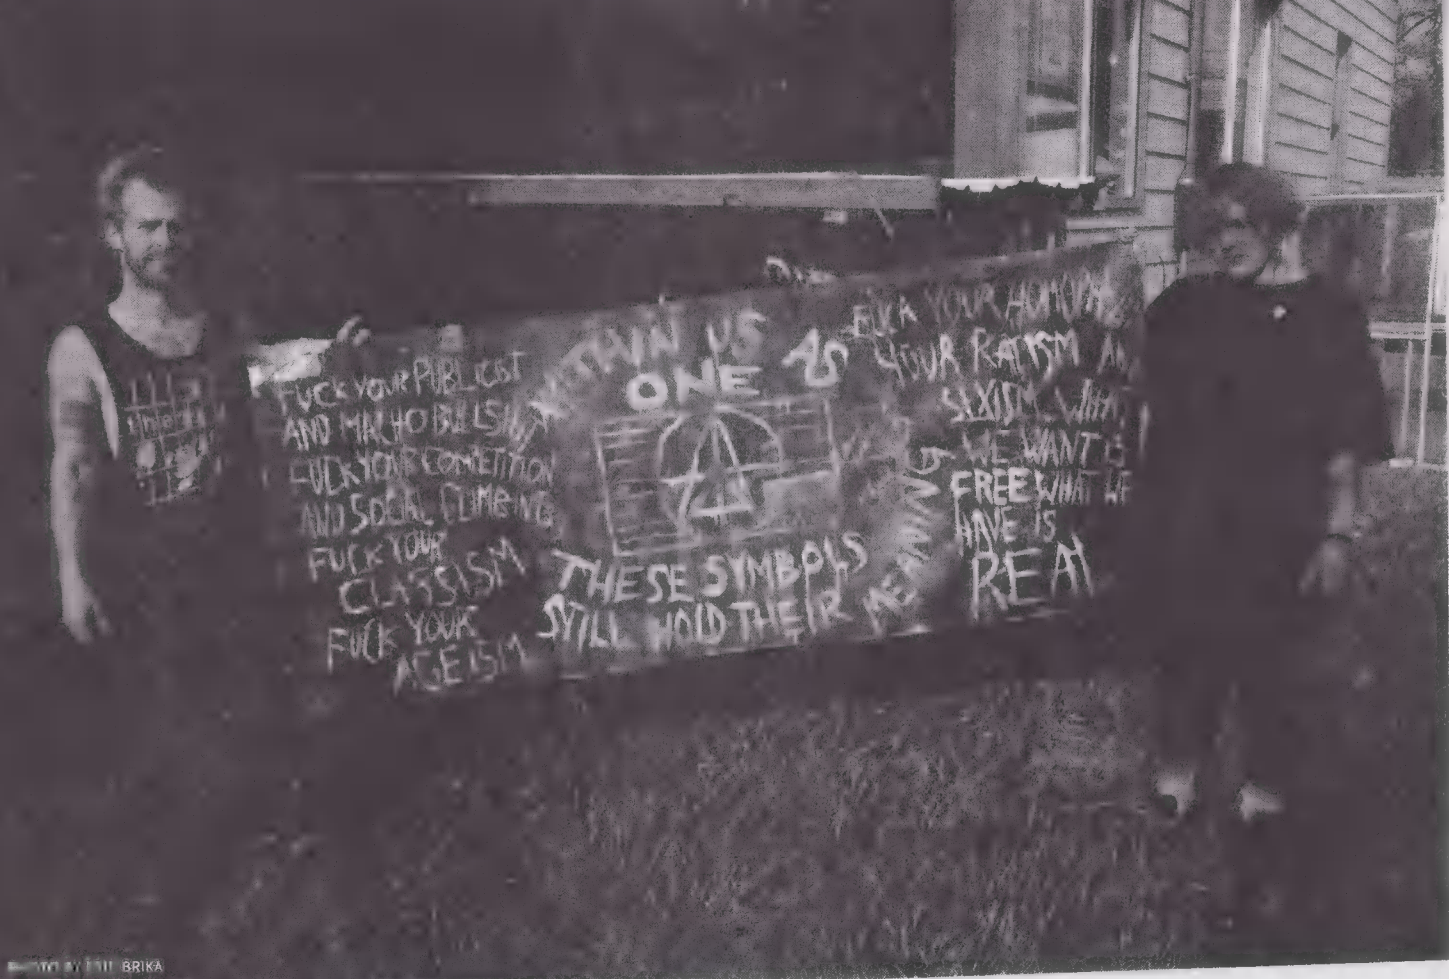 FUCK YOUR PUBLICIST
AND MACHO BULLSHIT
FUCK YOUR COMPETITION
AND SOCIAL CLIMBING
FUCK YOUR
CLASSISM
FUCK YOUR
AGEISM
WITHIN US AS
ONE
THESE SYMBOLS
STILL HOLD THEIR MEANINGS
FUCK YOUR
YOUR RACISM
SEXISM. WHAT
WE WANT IS
FREE WHAT WE
HAVE IS
REAL
PHOTO BY BRIKA